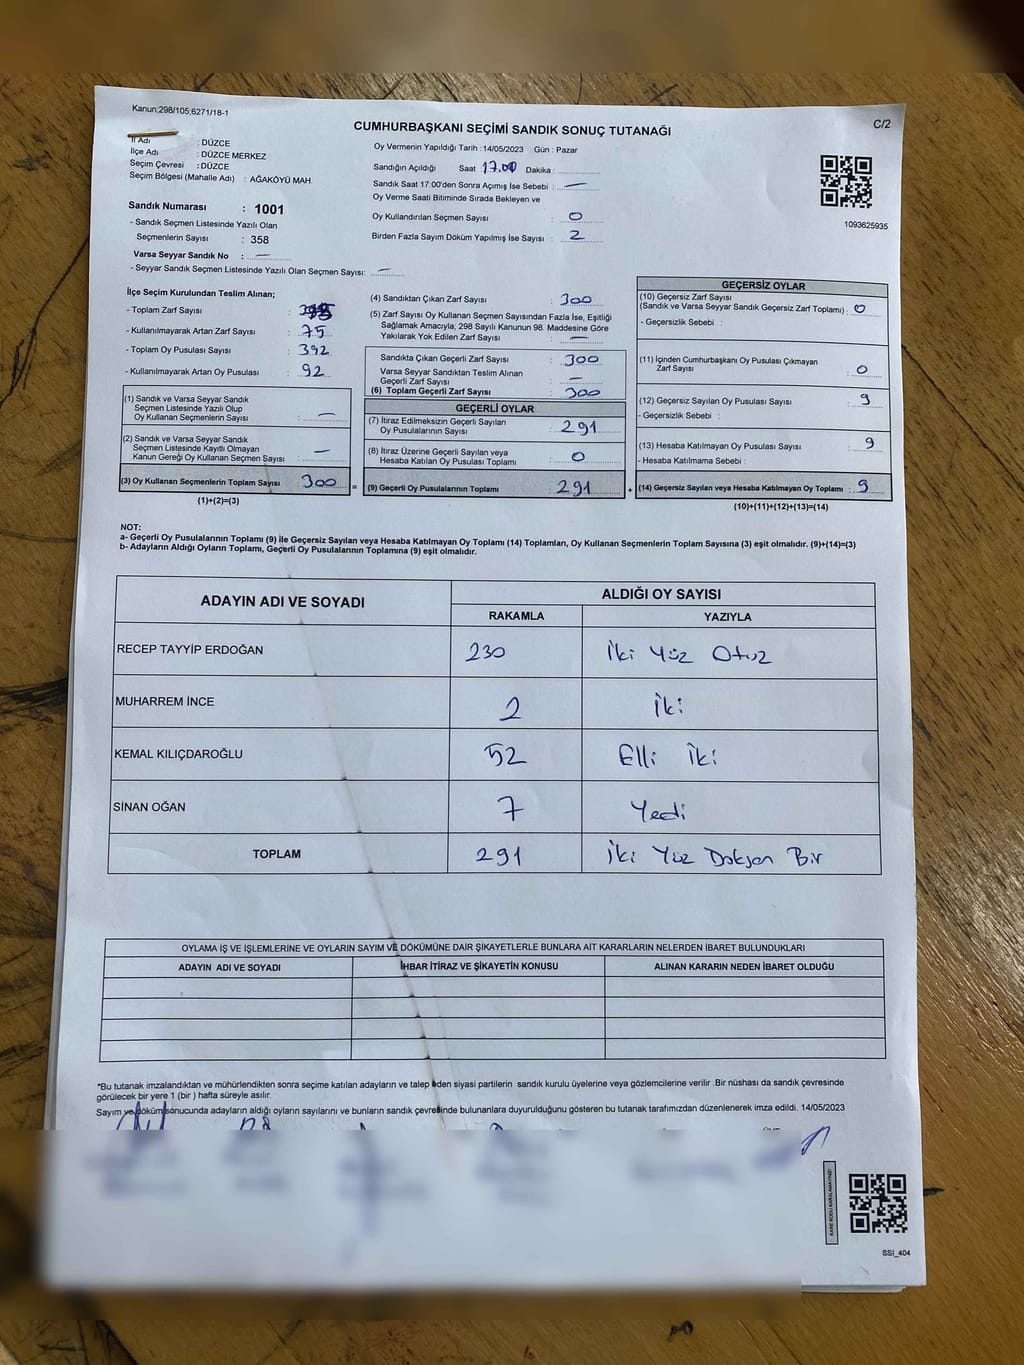 Kanun:298/105;6271/18-1
C/2
CUMHURBAŞKANI SEÇİMİ SANDIK SONUÇ TUTANAĞI
İl Adı : DÜZCE
İlçe Adı : DÜZCE MERKEZ
Seçim Çevresi : DÜZCE
Seçim Bölgesi (Mahalle Adı) : AĞAKÖYÜ MAH
Sandık Numarası : 1001
- Sandık Seçmen Listesinde Yazılı Olan
Seçmenlerin Sayısı : 358
Varsa Seyyar Sandık No : —
- Seyyar Sandık Seçmen Listesinde Yazılı Olan Seçmen Sayısı: —
Oy Vermenin Yapıldığı Tarih :14/05/2023 Gün : Pazar
Sandığın Açıldığı Saat :17.00 Dakika :
Sandık Saat 17:00'den Sonra Açımış İse Sebebi : —
Oy Verme Saati Bitiminde Sırada Bekleyen ve
Oy Kullandırılan Seçmen Sayısı : 0
Birden Fazla Sayım Döküm Yapılmış İse Sayısı : 2
1093625935
İlçe Seçim Kurulundan Teslim Alınan;
- Toplam Zarf Sayısı :
- Kullanılmayarak Artan Zarf Sayısı : 75
- Toplam Oy Pusulası Sayısı : 392
- Kullanılmayarak Artan Oy Pusulası : 92
(1) Sandık ve Varsa Seyyar Sandık
Seçmen Listesinde Yazılı Olup
Oy Kullanan Seçmenlerin Sayısı : —
(2) Sandık ve Varsa Seyyar Sandık
Seçmen Listesinde Kayıtlı Olmayan
Kanun Gereği Oy Kullanan Seçmen Sayısı : —
(3) Oy Kullanan Seçmenlerin Toplam Sayısı : 300
(1)+(2)=(3)
(4) Sandıktan Çıkan Zarf Sayısı : 300
(5) Zarf Sayısı Oy Kullanan Seçmen Sayısından Fazla İse, Eşitliği
Sağlamak Amacıyla; 298 Sayılı Kanunun 98. Maddesine Göre
Yakılarak Yok Edilen Zarf Sayısı : —
Sandıkta Çıkan Geçerli Zarf Sayısı : 300
Varsa Seyyar Sandıktan Teslim Alınan
Geçerli Zarf Sayısı : —
(6) Toplam Geçerli Zarf Sayısı : 300
=
GEÇERLİ OYLAR
(7) İtiraz Edilmeksizin Geçerli Sayılan
Oy Pusulalarının Sayısı : 291
(8) İtiraz Üzerine Geçerli Sayılan veya
Hesaba Katılan Oy Pusulası Toplamı : 0
(9) Geçerli Oy Pusulalarının Toplamı : 291
+
GEÇERSİZ OYLAR
(10) Geçersiz Zarf Sayısı
(Sandık ve Varsa Seyyar Sandık Geçersiz Zarf Toplamı) : 0
- Geçersizlik Sebebi :
(11) İçinden Cumhurbaşkanı Oy Pusulası Çıkmayan
Zarf Sayısı : 0
(12) Geçersiz Sayılan Oy Pusulası Sayısı : 9
- Geçersizlik Sebebi :
(13) Hesaba Katılmayan Oy Pusulası Sayısı : 9
- Hesaba Katılmama Sebebi :
(14) Geçersiz Sayılan veya Hesaba Katılmayan Oy Toplamı : 9
(10)+(11)+(12)+(13)=(14)
NOT:
a- Geçerli Oy Pusulalarının Toplamı (9) İle Geçersiz Sayılan veya Hesaba Katılmayan Oy Toplamı (14) Toplamları, Oy Kullanan Seçmenlerin Toplam Sayısına (3) eşit olmalıdır. (9)+(14)=(3)
b- Adayların Aldığı Oyların Toplamı, Geçerli Oy Pusulalarının Toplamına (9) eşit olmalıdır.
ADAYIN ADI VE SOYADI ALDIĞI OY SAYISI
RAKAMLA YAZIYLA
RECEP TAYYİP ERDOĞAN 230 İki Yüz Otuz
MUHARREM İNCE 2 İki
KEMAL KILIÇDAROĞLU 52 Elli İki
SİNAN OĞAN 7 Yedi
TOPLAM 291 İki Yüz Doksan Bir
OYLAMA İŞ VE İŞLEMLERİNE VE OYLARIN SAYIM VE DÖKÜMÜNE DAİR ŞİKAYETLERLE BUNLARA AİT KARARLARIN NELERDEN İBARET BULUNDUKLARI
ADAYIN ADI VE SOYADI İHBAR İTİRAZ VE ŞİKAYETİN KONUSU ALINAN KARARIN NEDEN İBARET OLDUĞU
*Bu tutanak imzalandıktan ve mühürlendikten sonra seçime katılan adayların ve talep eden siyasi partilerin sandık kurulu üyelerine veya gözlemcilerine verilir .Bir nüshası da sandık çevresinde
görülecek bir yere 1 (bir ) hafta süreyle asılır.
Sayım ve döküm sonucunda adayların aldığı oyların sayılarını ve bunların sandık çevresinde bulunanlara duyurulduğunu gösteren bu tutanak tarafımızdan düzenlenerek imza edildi. 14/05/2023
KARE KODU KARALAMAYINIZ!
SSI_404